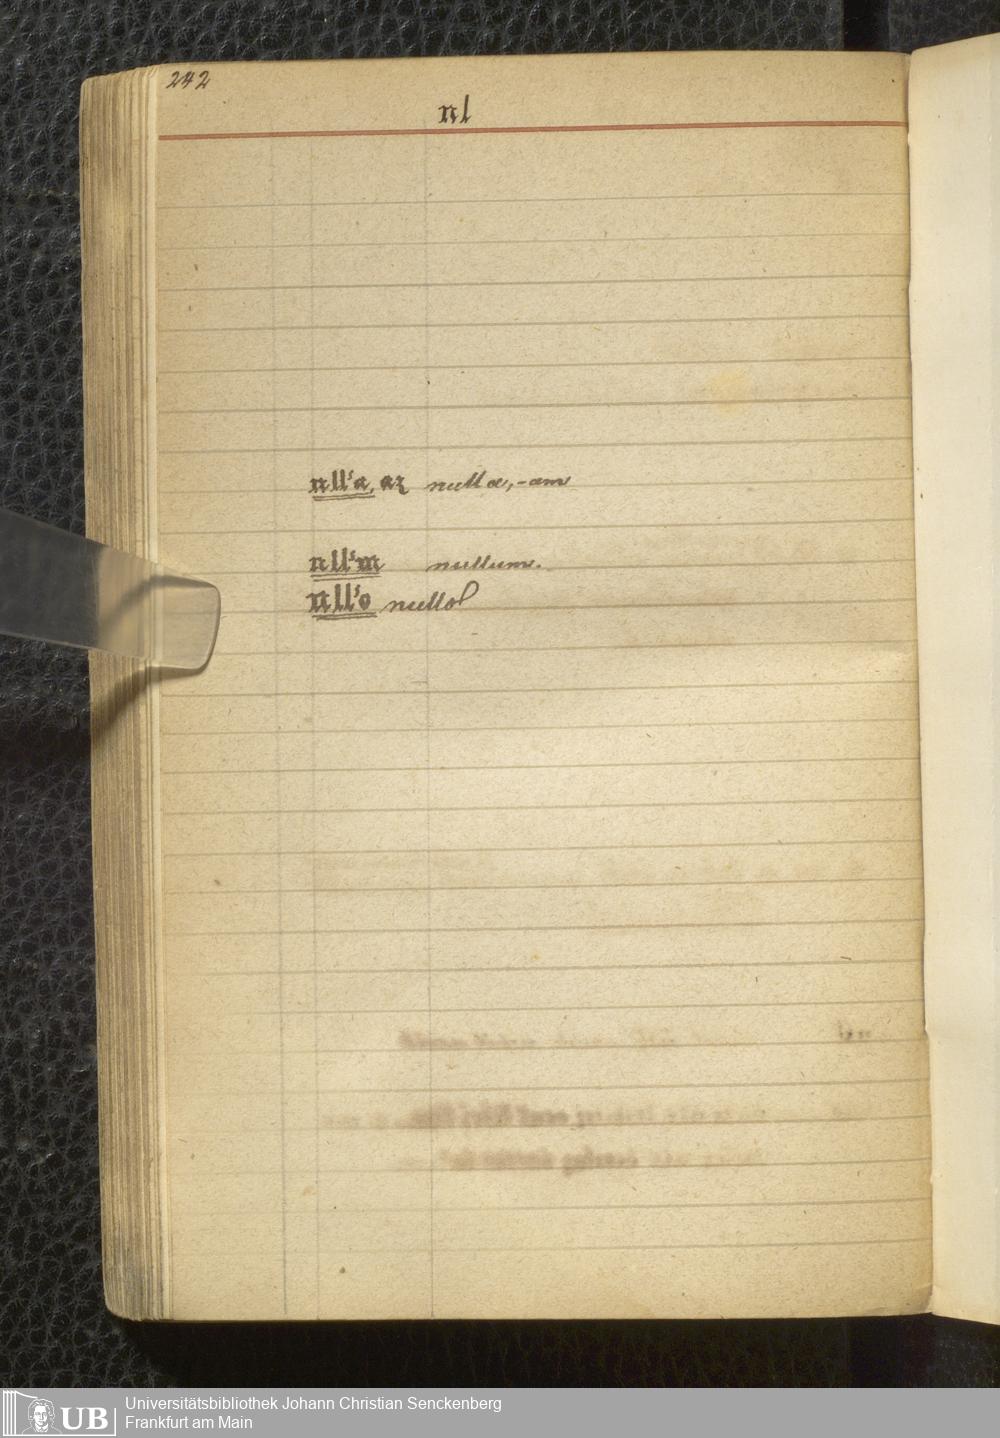 242
nl
nllˢa, aꝫ nulla, -am
nllˢm nullum.
nllˢo nullo
UB Universitätsbibliothek Johann Christian Senckenberg
Frankfurt am Main